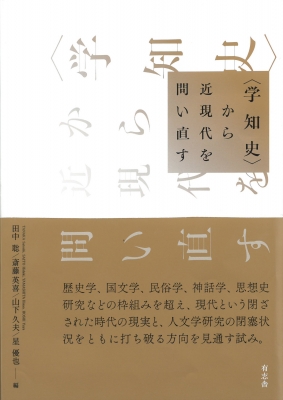 〈学知史〉
から
近現代を
問い直す
〈学知史〉
から
近現代を
問い直す
歴史学、国文学、民俗学、神話学、思想史
研究などの枠組みを超え、現代という閉ざ
された時代の現実と、人文学研究の閉塞状
況をともに打ち破る方向を見通す試み。
田中 聡／斎藤英喜／山下久夫／星 優也─編
有志舎